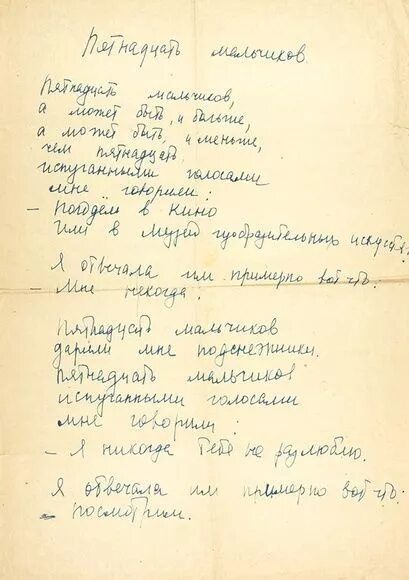 Пятнадцать мальчиков.
Пятнадцать мальчиков,
а может быть, и больше,
а может быть, и меньше,
чем пятнадцать,
испуганными голосами
мне говорили:
– Пойдём в кино
Или в музей изобразительных искусств.
Я отвечала им примерно вот что:
– Мне некогда.
Пятнадцать мальчиков
дарили мне подснежники.
Пятнадцать мальчиков
испуганными голосами
мне говорили:
– Я никогда тебя не разлюблю.
Я отвечала им примерно вот что:
– Посмотрим.